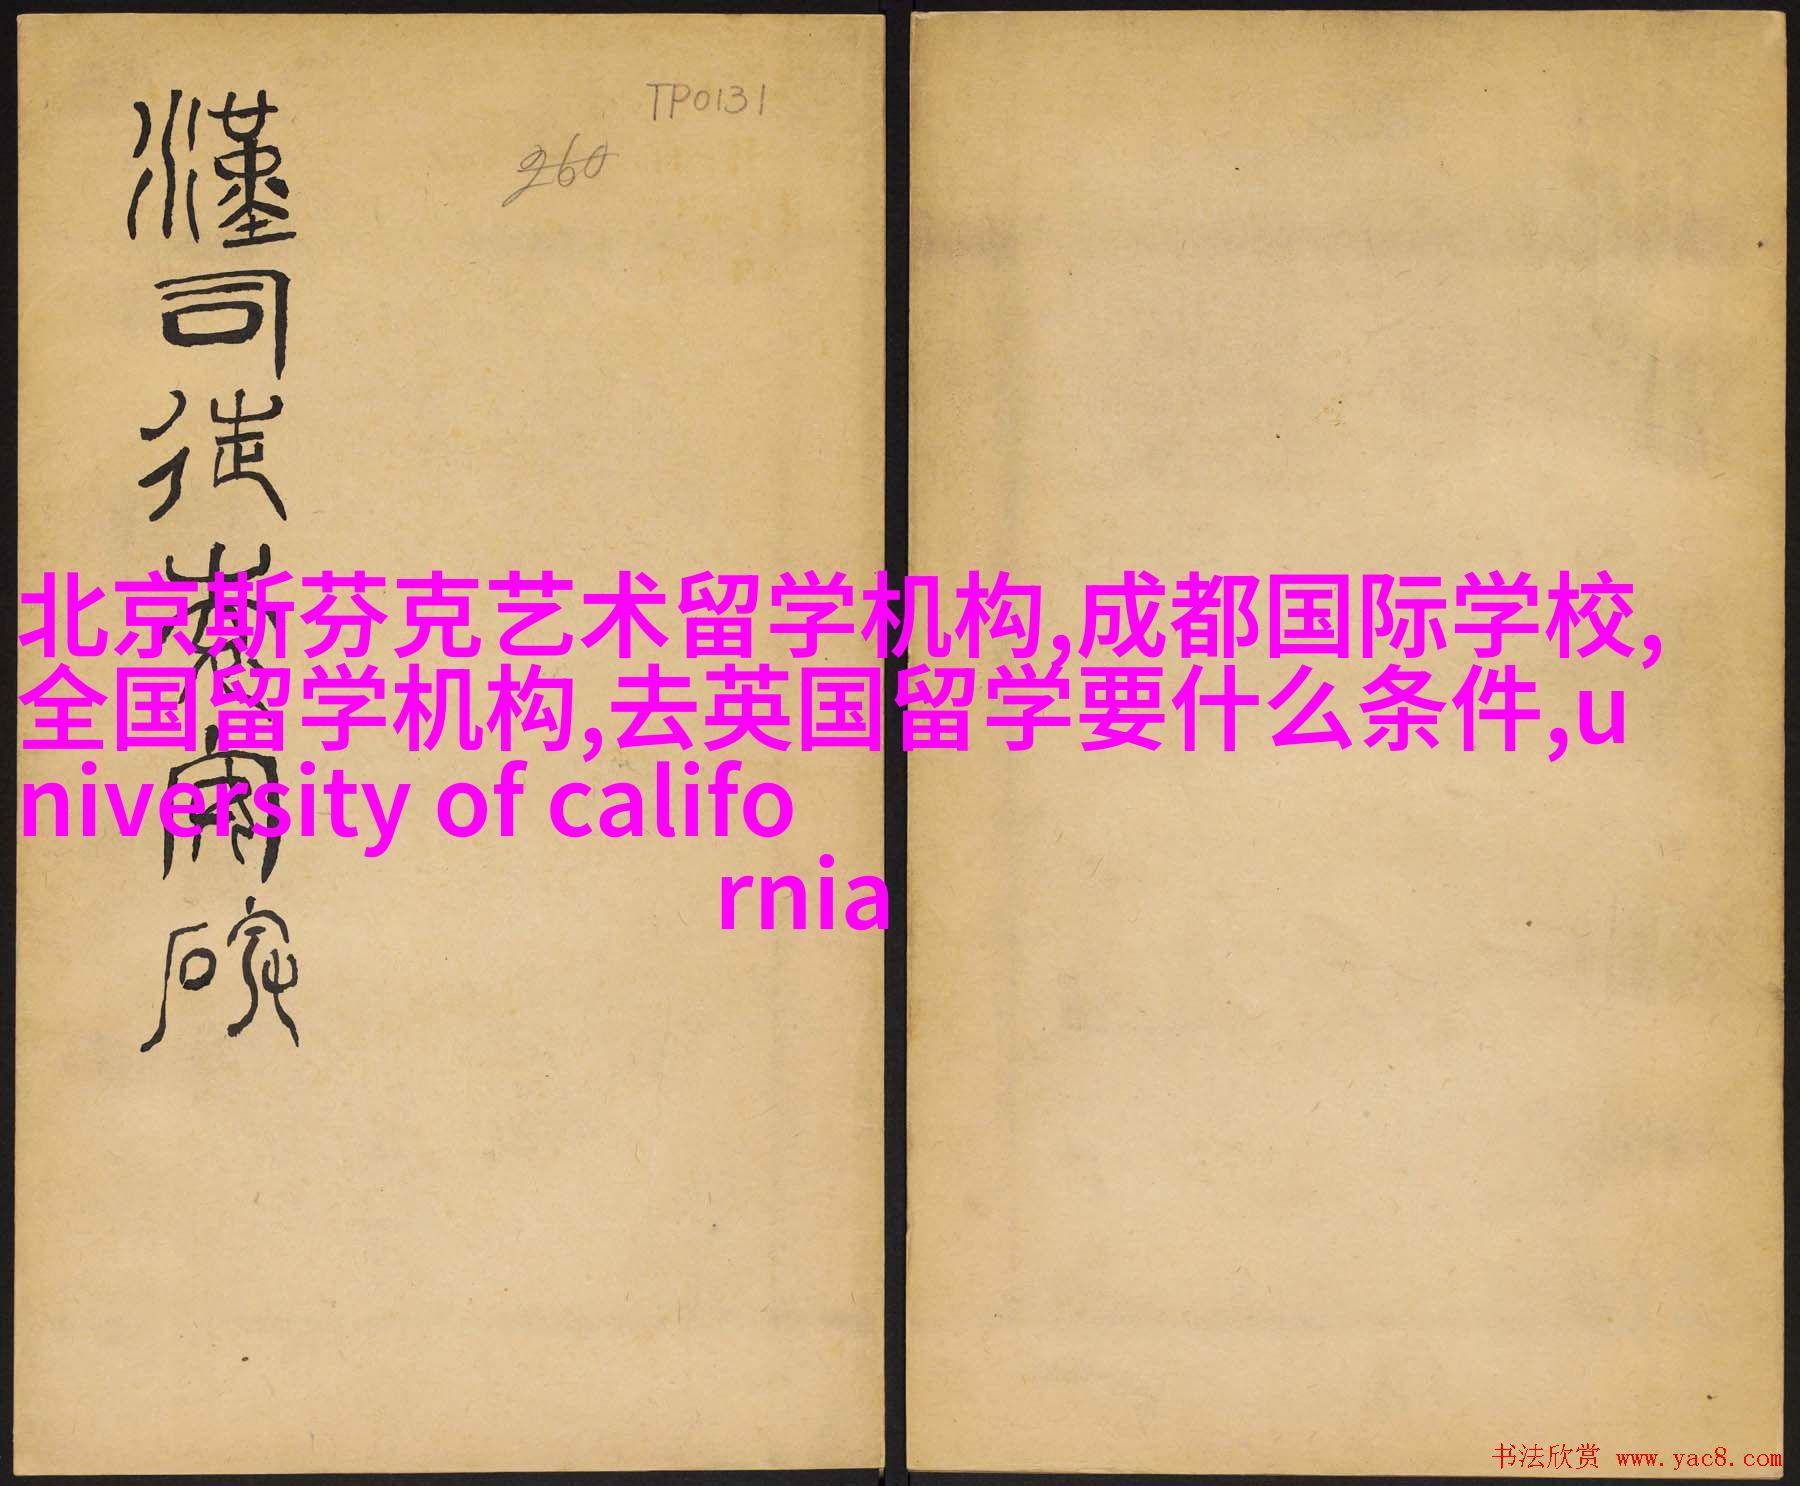 漢司徒袁安碑
TP0131
260
北京斯芬克艺术留学机构,成都国际学校,
全国留学机构,去英国留学要什么条件,u
niversity of califo
rnia
书法欣赏 www.yac8.com